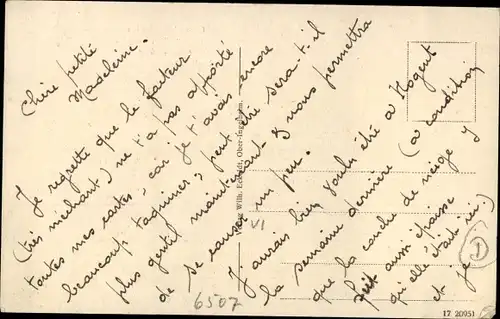 Chère petite
Madeleine.
Je regrette que le facteur
(très méchant) ne t'a pas apporté
toutes mes cartes, car je t'avais encore
beaucoup taquinée, peut être sera-t-il
plus gentil maintenant & nous permettra
de se causer un peu.
J'aurais bien voulu été a Nogent
la semaine dernière (a condition
que la couche de neige y
soit aussi épaisse
qu'elle était ici.)
et je
Verlag Wilh. Eckardt, Ober-Ingelheim.
VI
6507
D
17 20951